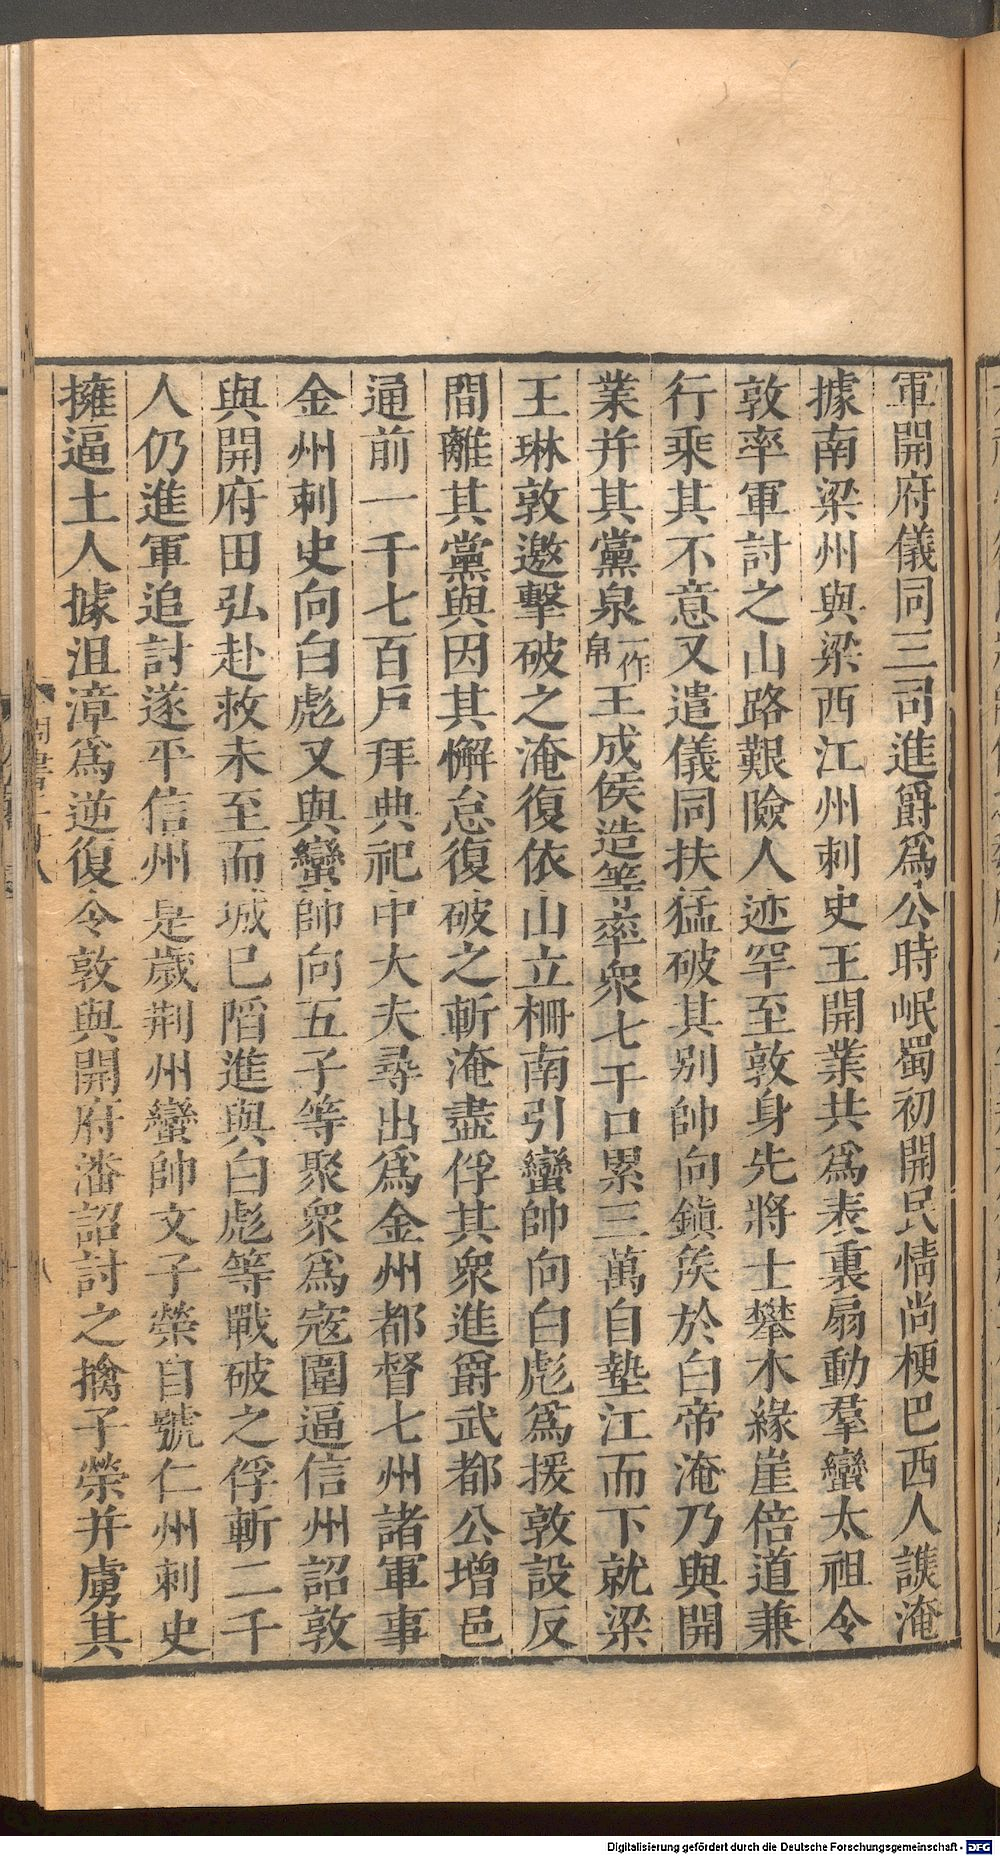 軍開府儀同三司進爵爲公時岷蜀初開民情尚梗巴西人譙淹
據南梁州與梁西江州刺史王開業共爲表裏扇動羣蠻太祖令
敦率軍討之山路艱險人迹罕至敦身先將士攀木緣崖倍道兼
行乘其不意又遣儀同扶猛破其别帥向鎭矦於白帝淹乃與開
業并其黨泉一作帛王成侯造等率衆七千口累三萬自墊江而下就梁
王琳敦邀擊破之淹復依山立柵南引蠻帥向白彪爲援敦設反
間離其黨與因其懈怠復破之斬淹盡俘其衆進爵武都公增邑
通前一千七百戸拜典祀中大夫尋出爲金州都督七州諸軍事
金州刺史向白彪又與蠻帥向五子等聚衆爲宼圍逼信州詔敦
與開府田弘赴救未至而城已䧟進與白彪等戰破之俘斬二千
人仍進軍追討遂平信州是歲荆州蠻帥文子榮自號仁州刺史
擁逼土人據沮漳爲逆復令敦與開府潘詔討之擒子榮并虜其
八
Digitalisierung gefördert durch die Deutsche Forschungsgemeinschaft - DFG